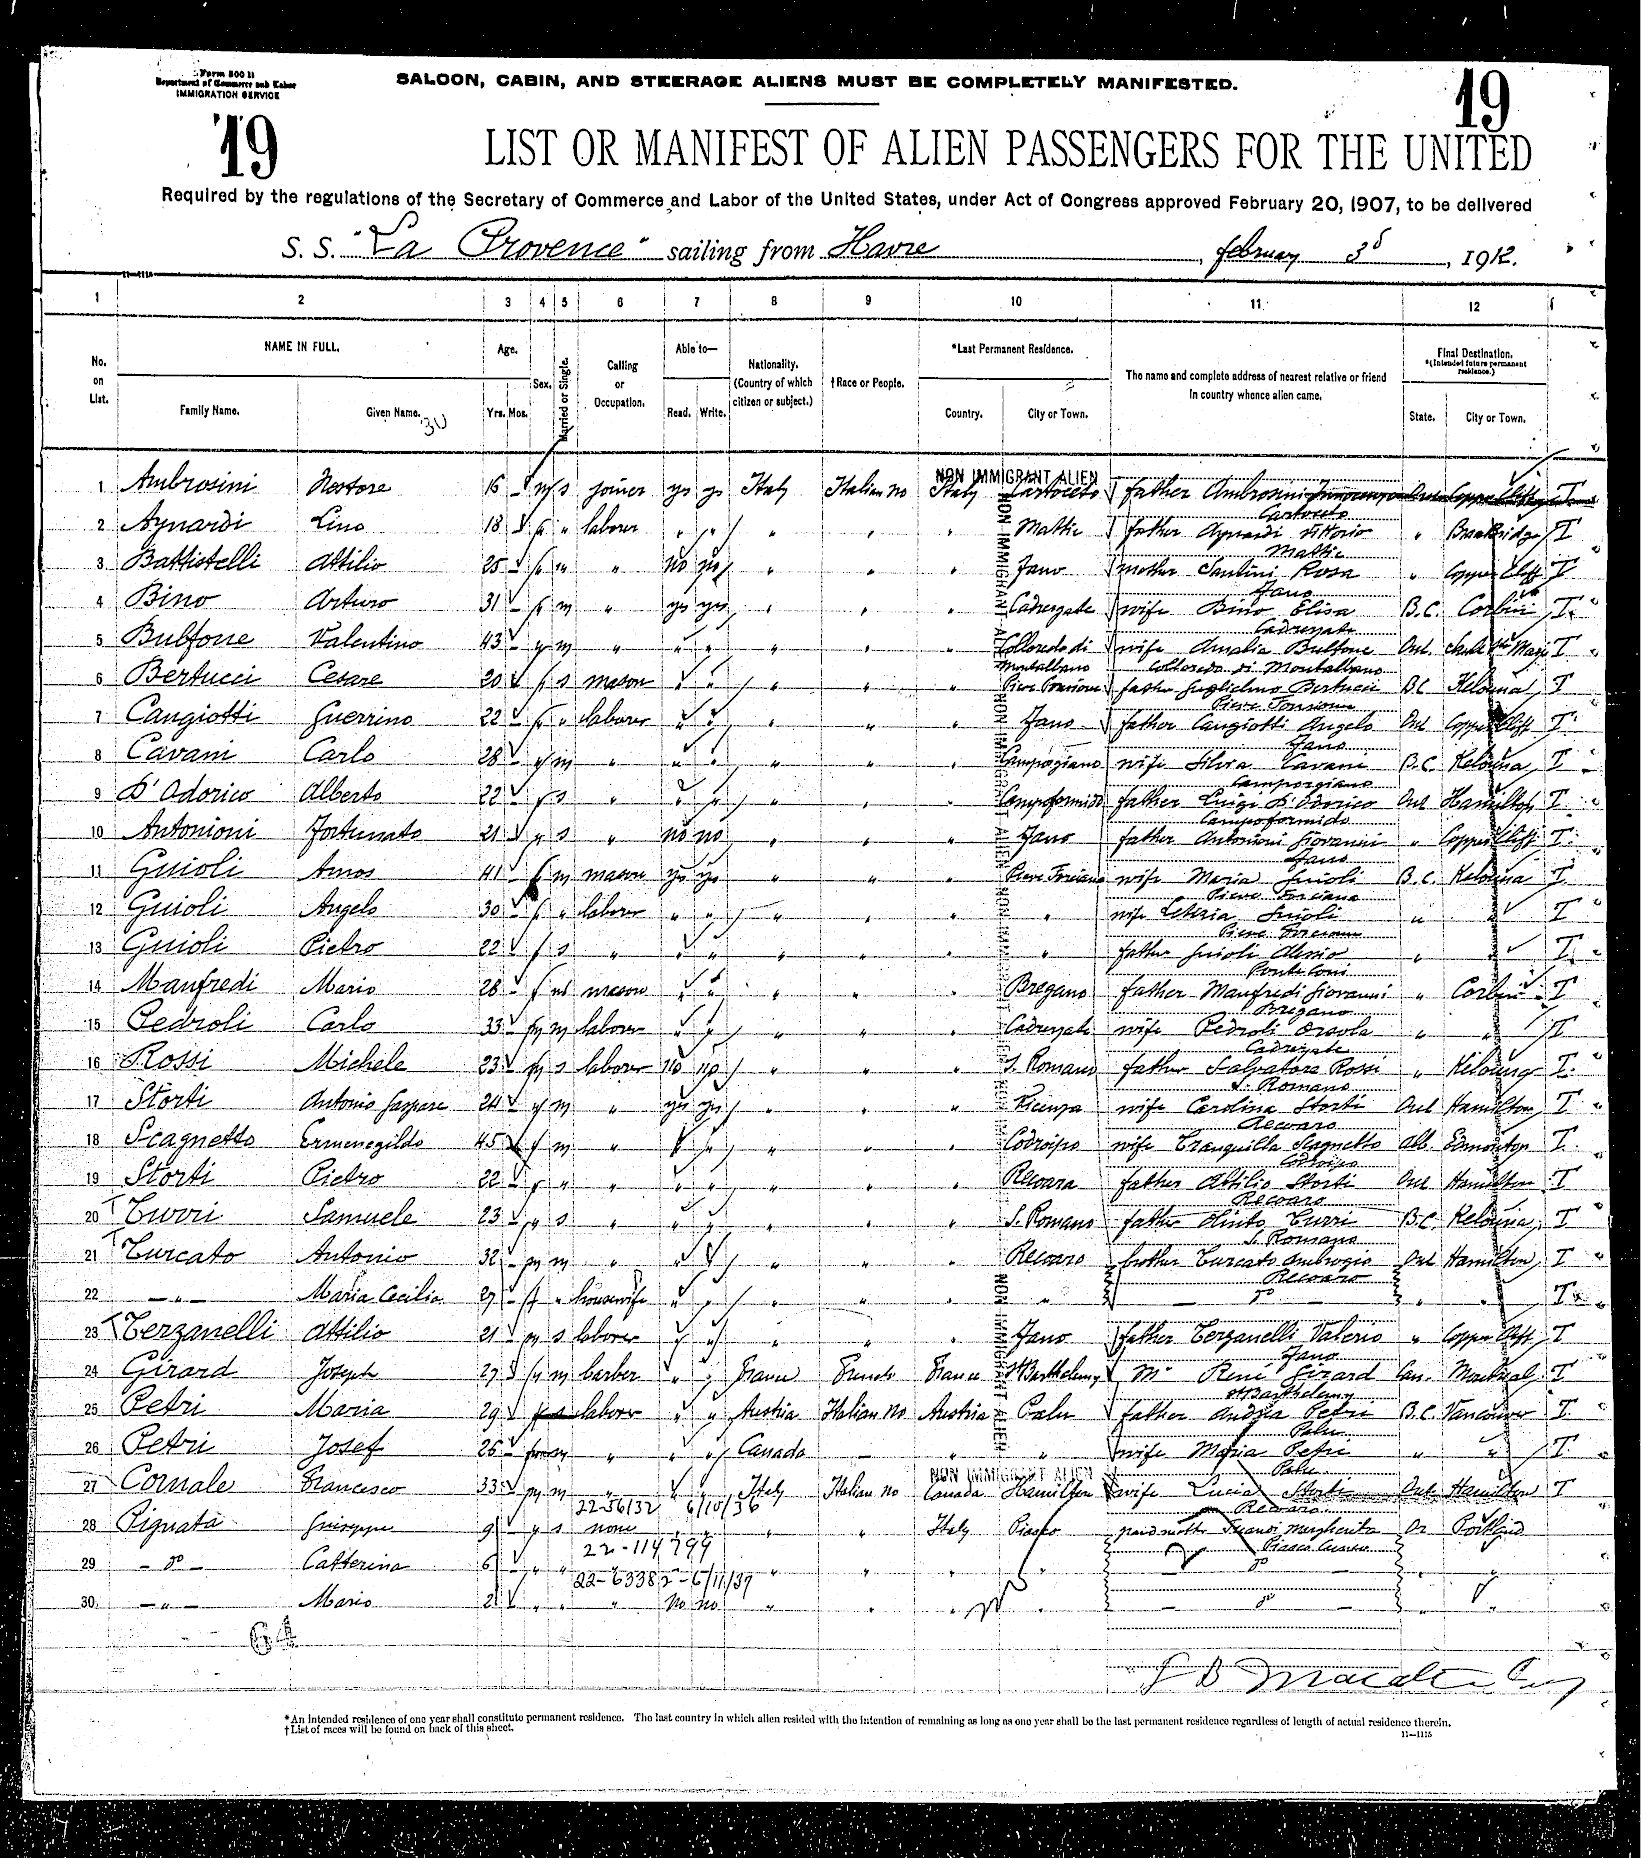 Form 500 B
Department of Commerce and Labor
IMMIGRATION SERVICE
SALOON, CABIN, AND STEERAGE ALIENS MUST BE COMPLETELY MANIFESTED.
19
19
LIST OR MANIFEST OF ALIEN PASSENGERS FOR THE UNITED
Required by the regulations of the Secretary of Commerce and Labor of the United States, under Act of Congress approved February 20, 1907, to be delivered
S. S. "La Provence" sailing from Havre, february 3d, 1912.
1 2 3 4 5 6 7 8 9 10 11 12
No. on List.
NAME IN FULL.
Family Name. Given Name.
Age.
Yrs. Mos.
Sex.
Married or Single.
Calling or Occupation.
Able to—
Read. Write.
Nationality. (Country of which citizen or subject.)
†Race or People.
*Last Permanent Residence.
Country. City or Town.
The name and complete address of nearest relative or friend in country whence alien came.
Final Destination.
*(Intended future permanent residence.)
State. City or Town.
NON IMMIGRANT ALIEN
1 Ambrosini Nestore 16 m s joiner yes yes Italy Italian no Italy Cartoceto father Ambrosini
Cartoceto
2 Aynardi Lino 18 " laborer " " " " " Mattie father Aynardi Vittorio "
Mattie
3 Battistelli Attilio 25 " " no no " " " Fano mother Santini Rosa " Copper Cliff T
Fano
4 Bino Arturo 31 m " yes yes " " " Cadrezzate wife Bino Elisa B.C. Corbin T
Cadrezzate
5 Bulfone Valentino 43 m " " " " " " Colloredo di Montalbano wife Amalia Bulfone Ont. Sault Ste Marie T
Colloredo di Montalbano
6 Bertucci Cesare 20 s mason " " " " " father Guglielmo Bertucci BC Kelowna T
7 Cangiotti Guerrino 22 " laborer " " " " " Fano father Cangiotti Angelo Ont Copper Cliff T
Fano
8 Cavani Carlo 28 m " " " " " " Camporgiano wife Silvia Cavani B.C. Kelowna T
Camporgiano
9 D'Odorico Alberto 22 s " " " " " " Campoformido father Luigi D'Odorico Ont Hamilton T
Campoformido
10 Antonioni Fortunato 21 s " no no " " " Fano father Antonioni Giovanni " Copper Cliff T
Fano
11 Guioli Amos 41 m mason yes yes " " " wife Maria Guioli B.C. Kelowna T
12 Guioli Angelo 30 " laborer " " " " " " wife Guioli " " T
13 Guioli Pietro 22 s " " " " " " " father Guioli " " T
14 Manfredi Mario 28 mason " " " " " Bregano father Manfredi Giovanni " Corbin T
Bregano
15 Pedroli Carlo 33 m laborer " " " " " Cadrezzate wife Pedroli " " T
Cadrezzate
16 Rossi Michele 23 s laborer no no " " " S. Romano father Salvatore Rossi " Kelowna T
S. Romano
17 Storti Antonio Gaspare 24 m " yes yes " " " Vicenza wife Carolina Storti Ont Hamilton T
Recoaro
18 Scagnetto Ermenegildo 45 m " " " " " " Codroipo wife Tranquilla Scagnetto Alb. Edmonton T
Codroipo
19 Storti Pietro 22 " " " " " " " Recoaro father Attilio Storti Ont Hamilton T
Recoaro
20 Turri Samuele 23 s " " " " " " S. Romano father Turri B.C. Kelowna T
S. Romano
21 Turcato Antonio 32 m m " " " " " " Recoaro brother Turcato Ambrogio Ont Hamilton T
Recoaro
22 — " — Maria Cecilia 27 f " housewife " " " " " " — do — " " T
23 Terzanelli Attilio 21 m s laborer " " " " " Fano father Terzanelli Valerio " Copper Cliff T
Fano
24 Girard Joseph 27 m barber " " France French France St Barthelemy Mr René Girard Can. Montreal T
St Barthelemy
25 Petri Maria 29 laborer " " Austria Italian no Austria Palu father Andrea Petri B.C. Vancouver T
Palu
26 Petri Josef 26 m " " " Canada — " " wife Maria Petri " " T
Palu
NON IMMIGRANT ALIEN
27 Cornale Francesco 33 m m " " " Italy Italian no Canada Hamilton wife Lucia Storti Ont Hamilton T
Recoaro
22-56132 6/10/36
28 Pignata Giuseppe 9 s none " " " " Italy Piasco Margherita Or Portland
Piasco Cuneo
22-114799
29 — do — Catterina 6 " " " " " " " " do
22-63382-6/11/37
30 — " — Mario 2 " " " no no " " " " — do — " "
64
*An intended residence of one year shall constitute permanent residence. The last country in which alien resided with the intention of remaining as long as one year shall be the last permanent residence regardless of length of actual residence therein.
†List of races will be found on back of this sheet.
11—1115